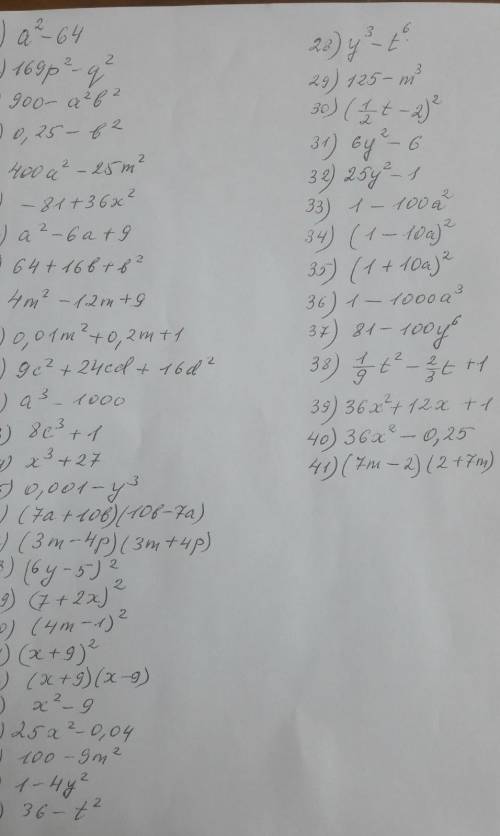 ) a² - 64
) 169p² - q²
900 - a²b²
) 0,25 - b²
400a² - 25m²
) - 81 + 36x²
) a² - 6a + 9
) 64 + 16b + b²
4m² - 12m + 9
) 0,01m² + 0,2m + 1
) 9c² + 24cd + 16d²
) a³ - 1000
) 8c³ + 1
) x³ + 27
) 0,001 - y³
) (7a + 10b)(10b - 7a)
) (3m - 4p)(3m + 4p)
) (6y - 5)²
9) (7 + 2x)²
0) (4m - 1)²
) (x + 9)²
) (x + 9)(x - 9)
) x² - 9
) 25x² - 0,04
) 100 - 9m²
) 1 - 4y²
) 36 - t²
28) y³ - t⁶
29) 125 - m³
30) (1/2 t - 2)²
31) 6y² - 6
32) 25y² - 1
33) 1 - 100a²
34) (1 - 10a)²
35) (1 + 10a)²
36) 1 - 1000a³
37) 81 - 100y⁶
38) 1/9 t² - 2/3 t + 1
39) 36x² + 12x + 1
40) 36x² - 0,25
41) (7m - 2)(2 + 7m)